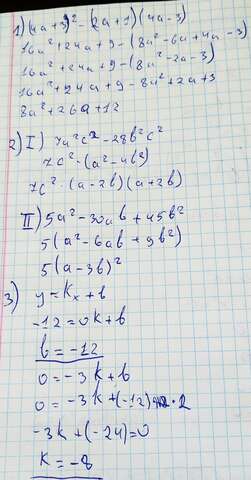 1) (4a+3)² - (2a+1)(4a-3)
16a²+24a+9-(8a²-6a+4a-3)
16a²+24a+9-(8a²-2a-3)
16a²+24a+9-8a²+2a+3
8a²+26a+12
2) I) 7a²c²-28b²c²
7c²·(a²-4b²)
7c²·(a-2b)(a+2b)
II) 5a²-30ab+45b²
5(a²-6ab+9b²)
5(a-3b)²
3) y=kx+b
-12=0k+b
b=-12
0=-3k+b
0=-3k+(-12)·2
-3k+(-24)=0
k=-8